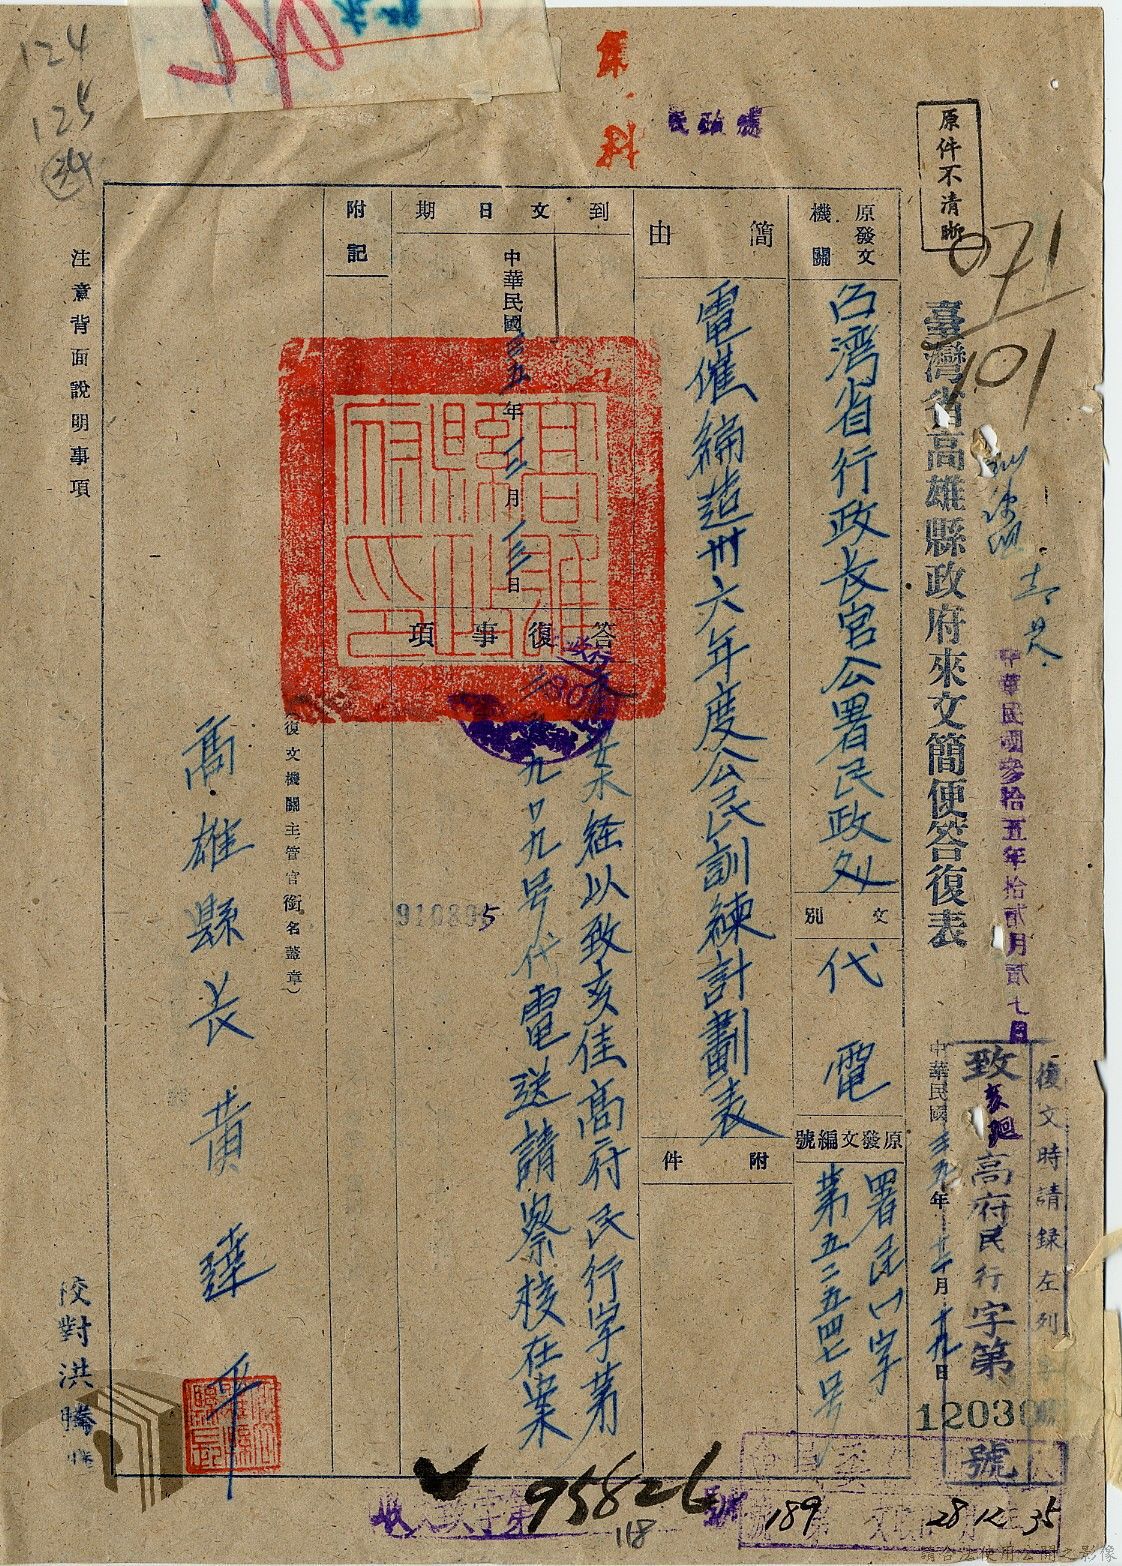 原件不清晰
臺灣省高雄縣政府來文簡便答復表
中華民國叁拾五年拾貳月貳七日
復文時請錄左列
致
高府民行字第
1203
號
原發文機關
台灣省行政長官公署民政处
文別
代電
原發文編號
署民口字
第五二五四七号
簡由
電催編造卅六年度公民訓練計劃表
附件
到文日期
中華民國
五年
月
日
答復事項
案經以致亥佳高府民行字第
九〇九号代電送請察核在案
910895
附記
復文機關主管官銜名蓋章）
高雄縣長黃達平
高雄縣政府印
注意背面說明事項
校對洪騰
124
125
24
071
101
95826
118
189
28 12 35
請合法使用公開之影像